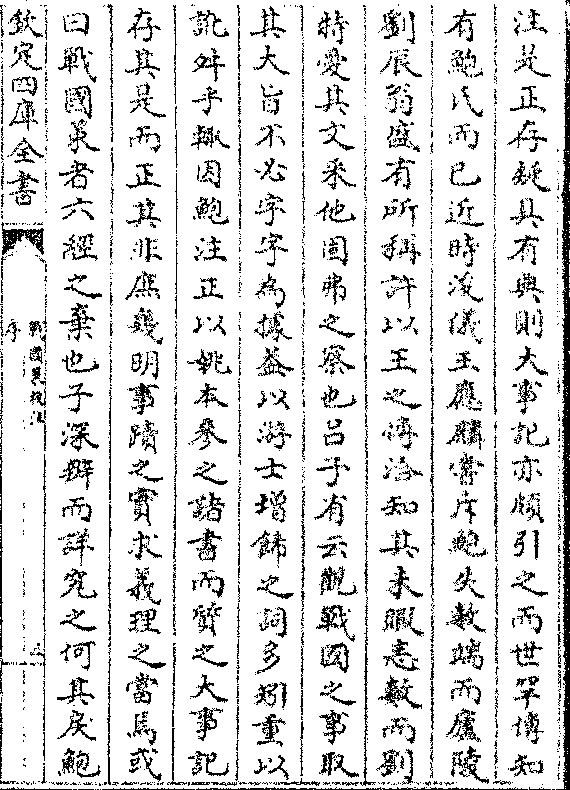 注是正存疑具有典則大事記亦頗引之而世罕傳知
有鮑氏而已近時浚儀王應麟嘗斥鮑失數端而廬陵
劉辰翁盛有所稱許以王之博洽知其未暇悉數而劉
特愛其文采他固弗之察也吕子有云觀戰國之事取
其大旨不必字字為據蓋以游士增飾之詞多矧重以
訛舛乎輒因鮑注正以姚本參之諸書而質之大事記
存其是而正其非庶幾明事蹟之實求義理之當焉或
曰戰國策者六經之棄也子深辨而詳究之何其戾鮑
欽定四庫全書
戰國策校注
序